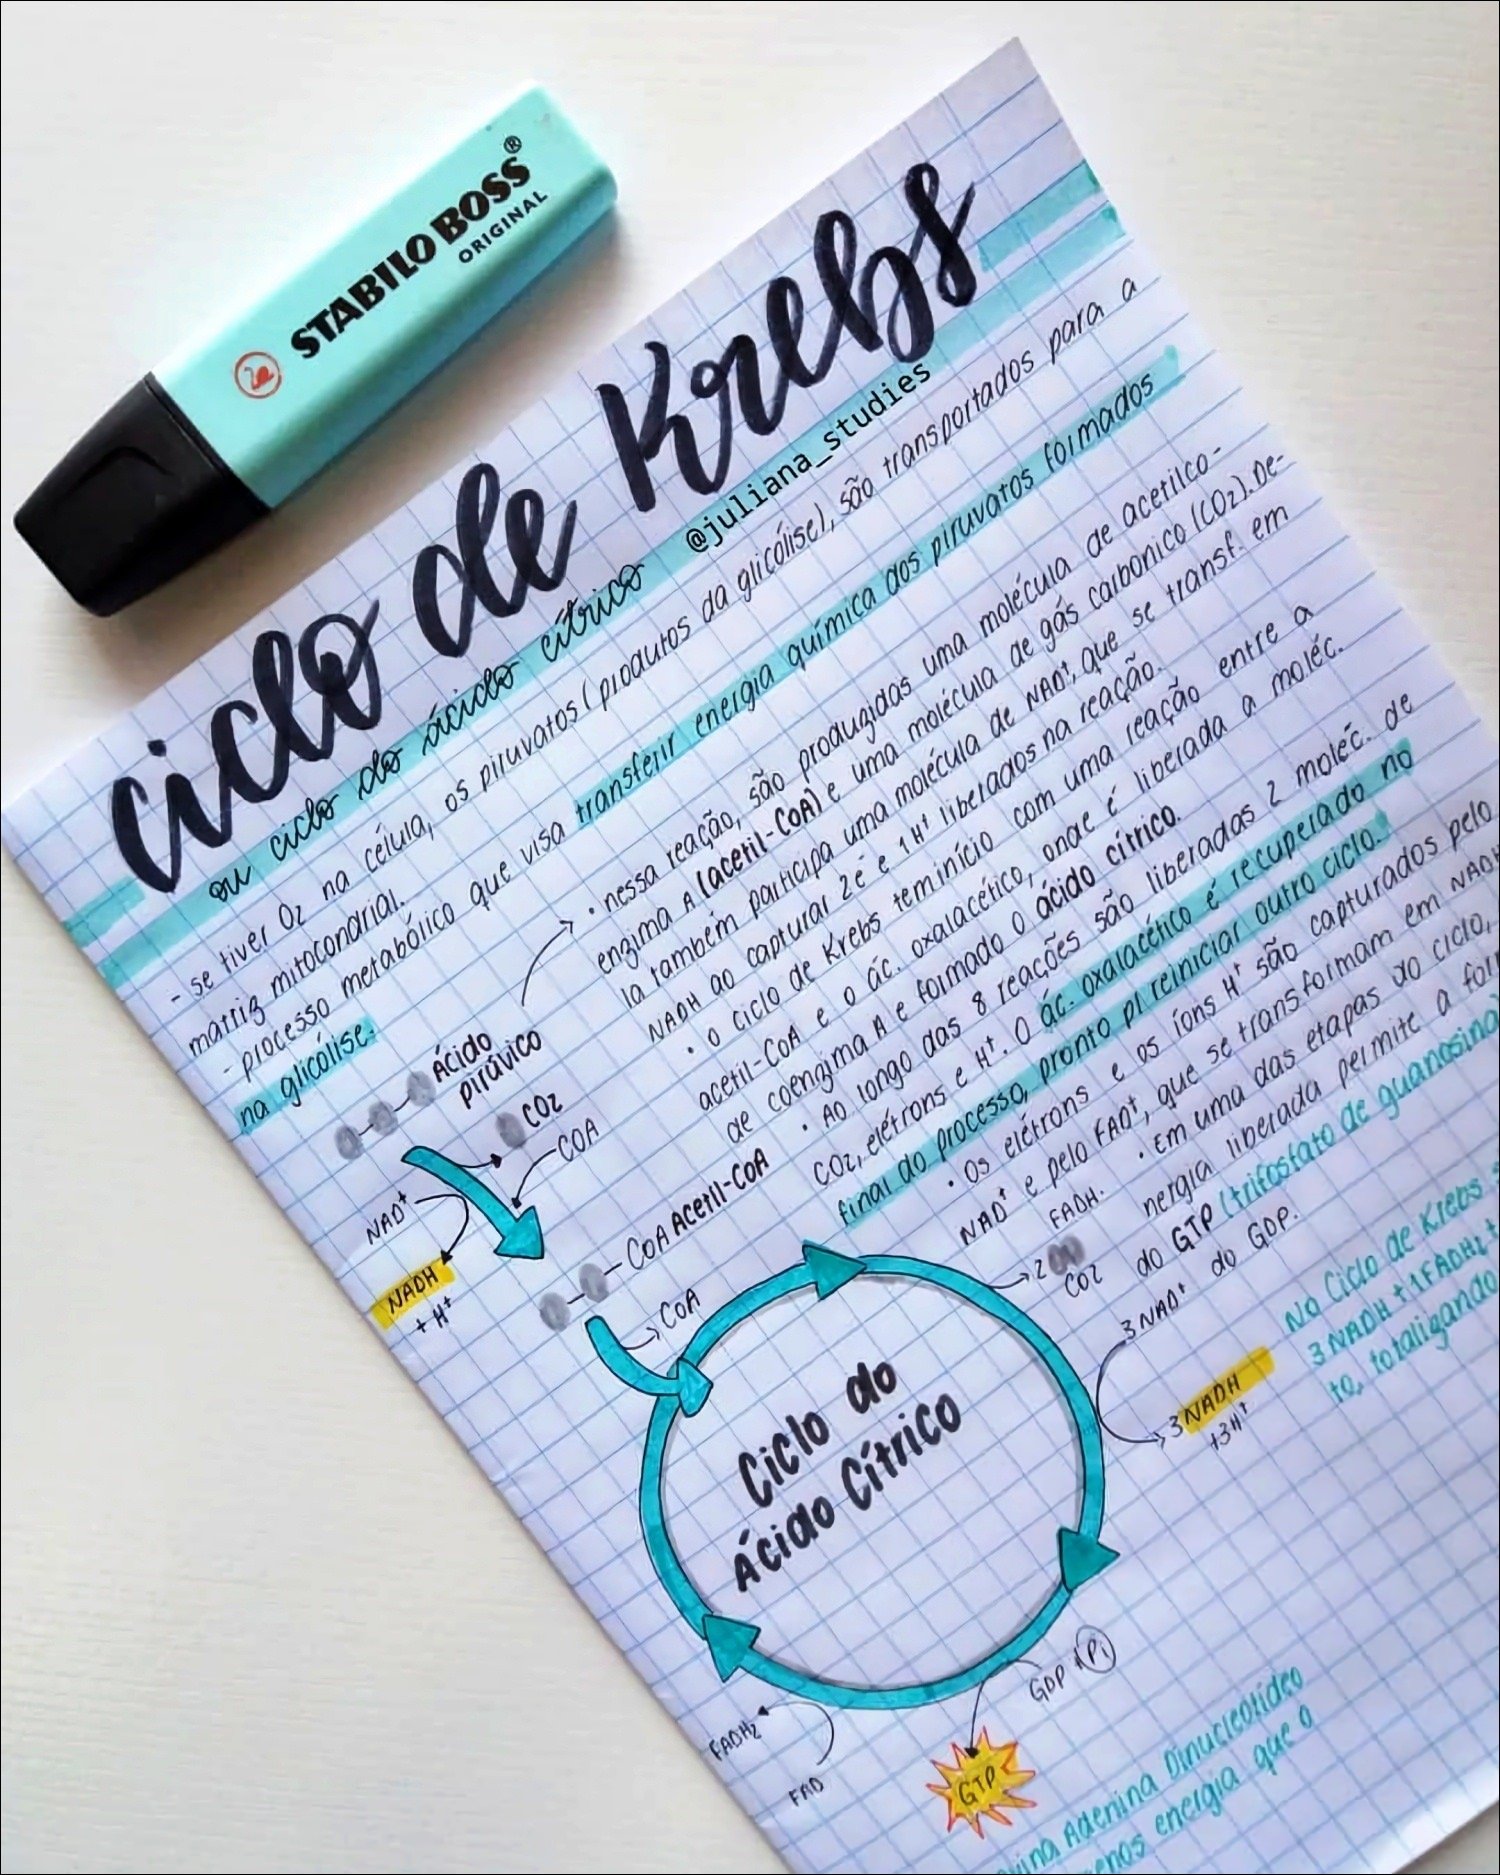 STABILO BOSS®
ORIGINAL
ciclo de Krebs
ou ciclo do ácido cítrico
@juliana_studies
- se tiver O2 na célula, os piruvatos (produtos da glicólise), são transportados para a
matriz mitocondrial.
- processo metabólico que visa transferir energia química dos piruvatos formados
na glicólise.
• nessa reação, são produzidas uma molécula de acetilco-
enzima A (acetil-CoA) e uma molécula de gás carbonico (CO2). De-
la também participa uma molécula de NAD+, que se transf. em
NADH ao capturar 2é e 1H+ liberados na reação.
• O ciclo de Krebs tem início com uma reação entre a
acetil-CoA e o ác. oxalacético, onde é liberada a moléc.
de coenzima A e formado o ácido cítrico.
• Ao longo das 8 reações são liberadas 2 moléc. de
CO2, elétrons e H+. O ác. oxalacético é recuperado no
final do processo, pronto p/ reiniciar outro ciclo.
• Os elétrons e os íons H+ são capturados pelo
NAD+ e pelo FAD+, que se transformam em NADH
FADH.
• Em uma das etapas do ciclo,
nergia liberada permite a for
do GTP (trifosfato de guanosina)
do GDP.
Ácido
pirúvico
CO2
COA
NAD+
NADH
+ H+
COA Acetil-COA
COA
2
CO2
3 NAD+
3 NADH
+3H+
No Ciclo de Krebs s
3 NADH + 1 FADH2 +
to, totalizando
Ciclo do
Ácido Cítrico
GDP + Pi
GTP
FADH2
FAD
vina Adenina Dinucleotídeo
enos energia que o